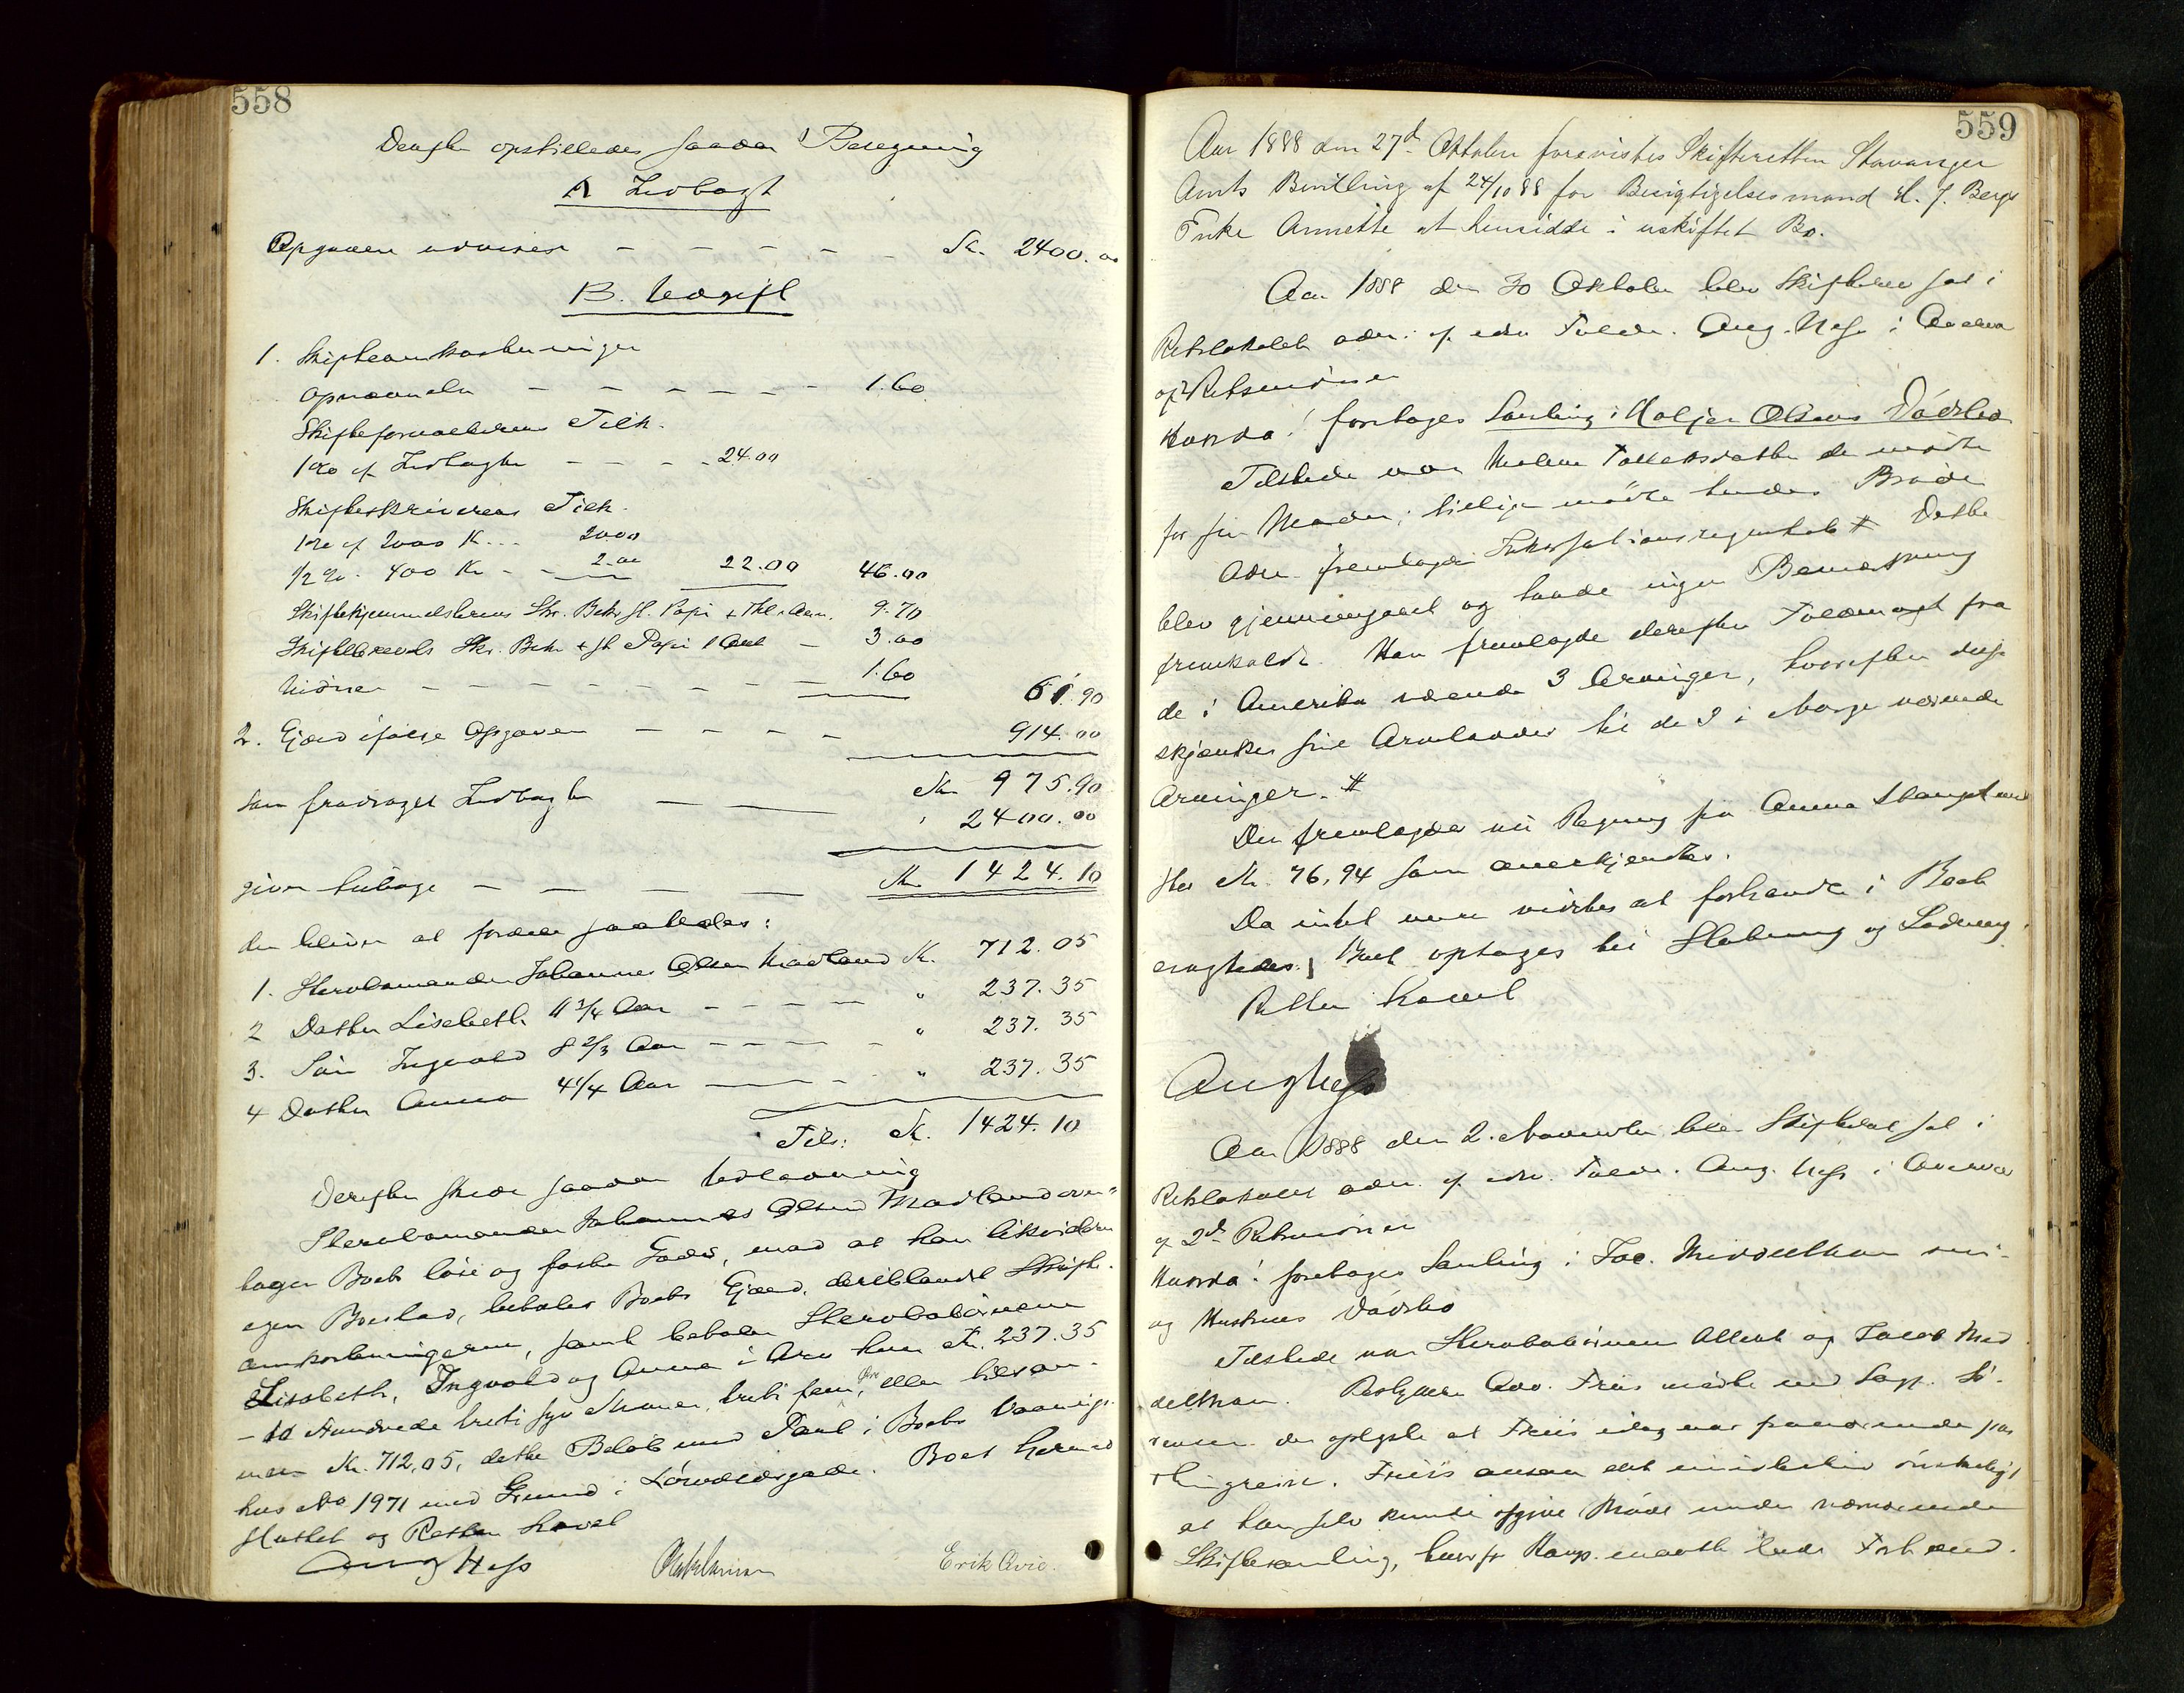 558
Derefter opstilledes saadan Beregning
A Indtægt
Opgaven udviser — — — — — Kr. 2400.00
B. Udgift
1. Skifteomkostninger
opnævnelse — — — — — — 1.60
Skifteforvalterens Tilk.
1% af Indtægten — — — 24.00
Skifteskriverens Tilk.
1% af 2000 K... 20.00
1/2 % - 400 Kr — — 2.00 22.00 46.00
Skifteskjønnets Skr. Bek. st. Papir + Thl. 9.70
Skiftebrevets Skr. Bek. + st. Papir 3.00
Vidner — — — — — — — — 1.60
61.90
2. Gjæld ifølge Opgaven — — — — 914.00
Kr 975.90
som fradraget Indtægten — — " 2400.00
giver tilbage — — — — Kr. 1424.10
der bliver at fordele saaledes:
1. Stervbomanden Johannes Olsen Madland K. 712.05
2 Datter Lisebeth 11 3/4 Aar - - - - " 237.35
3. Søn Ingvald 8 2/3 Aar - - - - " 237.35
4 Datter Anna 4 1/4 Aar — — - - " 237.35
Tils: K. 1424.10
Derefter skede saadan Udlodning
Stervbomanden Johannes Olsen Madland over-
tager Boets løse og faste Gods, mod at han likviderer
egen Boeslod, betaler Boets Gjæld, deriblandt Skifte-
omkostningerne, samt betaler Stervbobørnene
Lisabeth, Ingvald og Anna i Arv hver Kr. 237.35
- to Hundrede treti syv Kroner, treti fem Øre, eller tilsam-
men Kr. 712,05, dette Beløb mod Pant i Boets Vaanings-
hus No 1971 med Grund i Løvdalsgade. Boet hermed
sluttet og Retten hævet
Aug Hess Erik Avie.
559
Aar 1888 den 27d Oktober forevistes Skifteretten Stavanger
Amts Bevilling af 24/10 88 for Besigtigelsesmand H. J. Bergs
Enke Annette at hensidde i uskiftet Bo.
Aar 1888 den 30 Oktober blev Skifteret sat i
Retslokalet adm. af edsv. Fuldm. Aug. Hess i Overvær
af 2 Retsvidner
Hvorda! foretages Samling i Holjer Olsens Dødsbo
Tilstede var Malene Tollaksdatter der mødte
for sin Moder; tillige mødte hendes Broder
Adm. fremlagde Inkassationsregnskab # Dette
blev gjennemgaaet og havde ingen Bemærkning
fremkaldt. Han fremlagde derefter Fuldmagt fra
de i Amerika værende 3 Arvinger, hvorefter disse
skjænker sine Arvelodder til de 3 i Norge værende
Arvinger. #
Der fremlagdes nu Regning fra Anna Stangeland
stor Kr. 76,94 som anerkjendtes.
Da intet mere vidstes at forhandle i Boet
eragtedes: Boet optages til Slutning og Lodning.
Retten hævet
Aug Hess
Aar 1888 den 2. November blev Skifteret sat i
Retslokalet adm. af edsv. Fuldm. Aug. Hess i Overvær
af 2de Retsvidner
Hvorda! foretages Samling i Jac. Middelthon sen.
og Hustrues Dødsbo
Tilstede var Stervbobørnene Albert og Jacob Mid
delthon. Bestyrer Adv. Friis mødte ved Sagf. Sø-
rensen der oplyste at Friis idag var fraværende paa
thingreise. Friis ansaa det imidlertid ønskeligt
at han selv kunde afgive Møde under nærværende
Skiftesamling, hvorfor Komp. maatte bede Forhand-